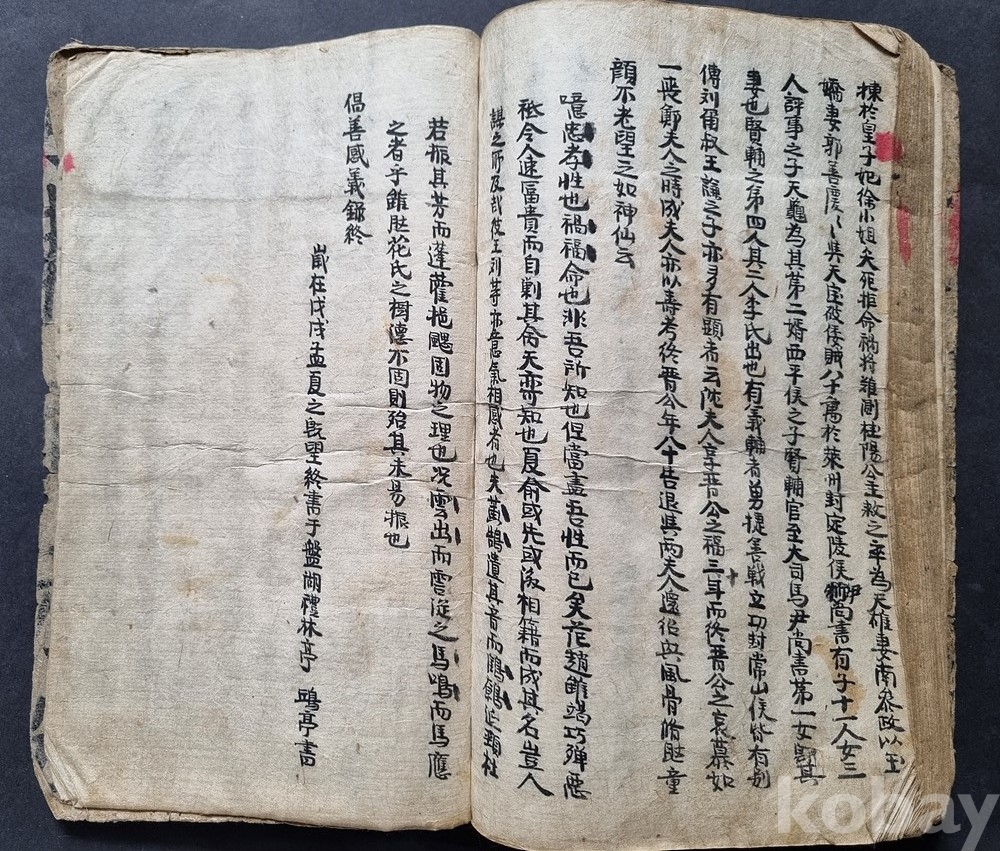 棟於皇子妃徐小姐矢死拒命禍將難測桂陽公主救之卒為天雄妻南參政以玉
嬌妻郭善慶〻與天虎破倭賊八十萬於萊州封定陵侯尹尚書有子十一人女三
人評事之子天龜為其第二婿西平侯之子賢輔官至大司馬尹尚書第一女卽其
妻也賢輔之第四人其二人李氏出也有義輔者勇捷善戰立功封常山侯皆有別
傳刘甫叔王諭之子亦多有顯者云沈夫人享晋公之福三十年而終晋公之哀慕如
一喪鄭夫人之時成夫人亦以壽考終晋公年八十告退與兩夫人還紹興風骨脩然童
顏不老望之如神仙云
噫忠孝性也禍福命也非吾所知也但當盡吾性而已矣花趙雖竭巧殫惡
秪令人速富貴而自剿其命天亦可知也夏俞或先或後相籍而成其名豈人
謀之所及哉彼王刘等亦意氣相感者也夫黃鵠遺其音而鶴鵝延頸杜
若振其芳而蓬藿挹颸固物之理也况雲出而雲從之馬鳴而馬應
之者乎雖然花氏之樹德不固則殆其未易振也
倡善感義錄終
歲在戊戌孟夏之旣望終書于盤湖禮林亭 鳴亭書
kobay